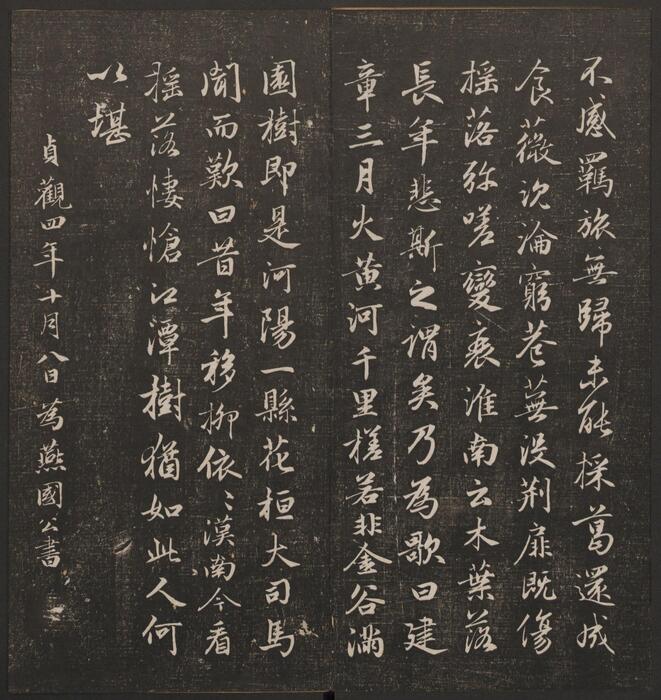 不感羈旅無歸未能採葛還成
食薇沉淪窮巷蕪沒荊扉既傷
搖落弥嗟變衰淮南云木葉落
長年悲斯之謂矣乃為歌曰建
章三月火黄河千里槎若非金谷滿
園樹即是河陽一縣花桓大司馬
聞而歎曰昔年移柳依〻漢南今看
搖落悽愴江潭樹猶如此人何
以堪
貞觀四年十月八日為燕國公書